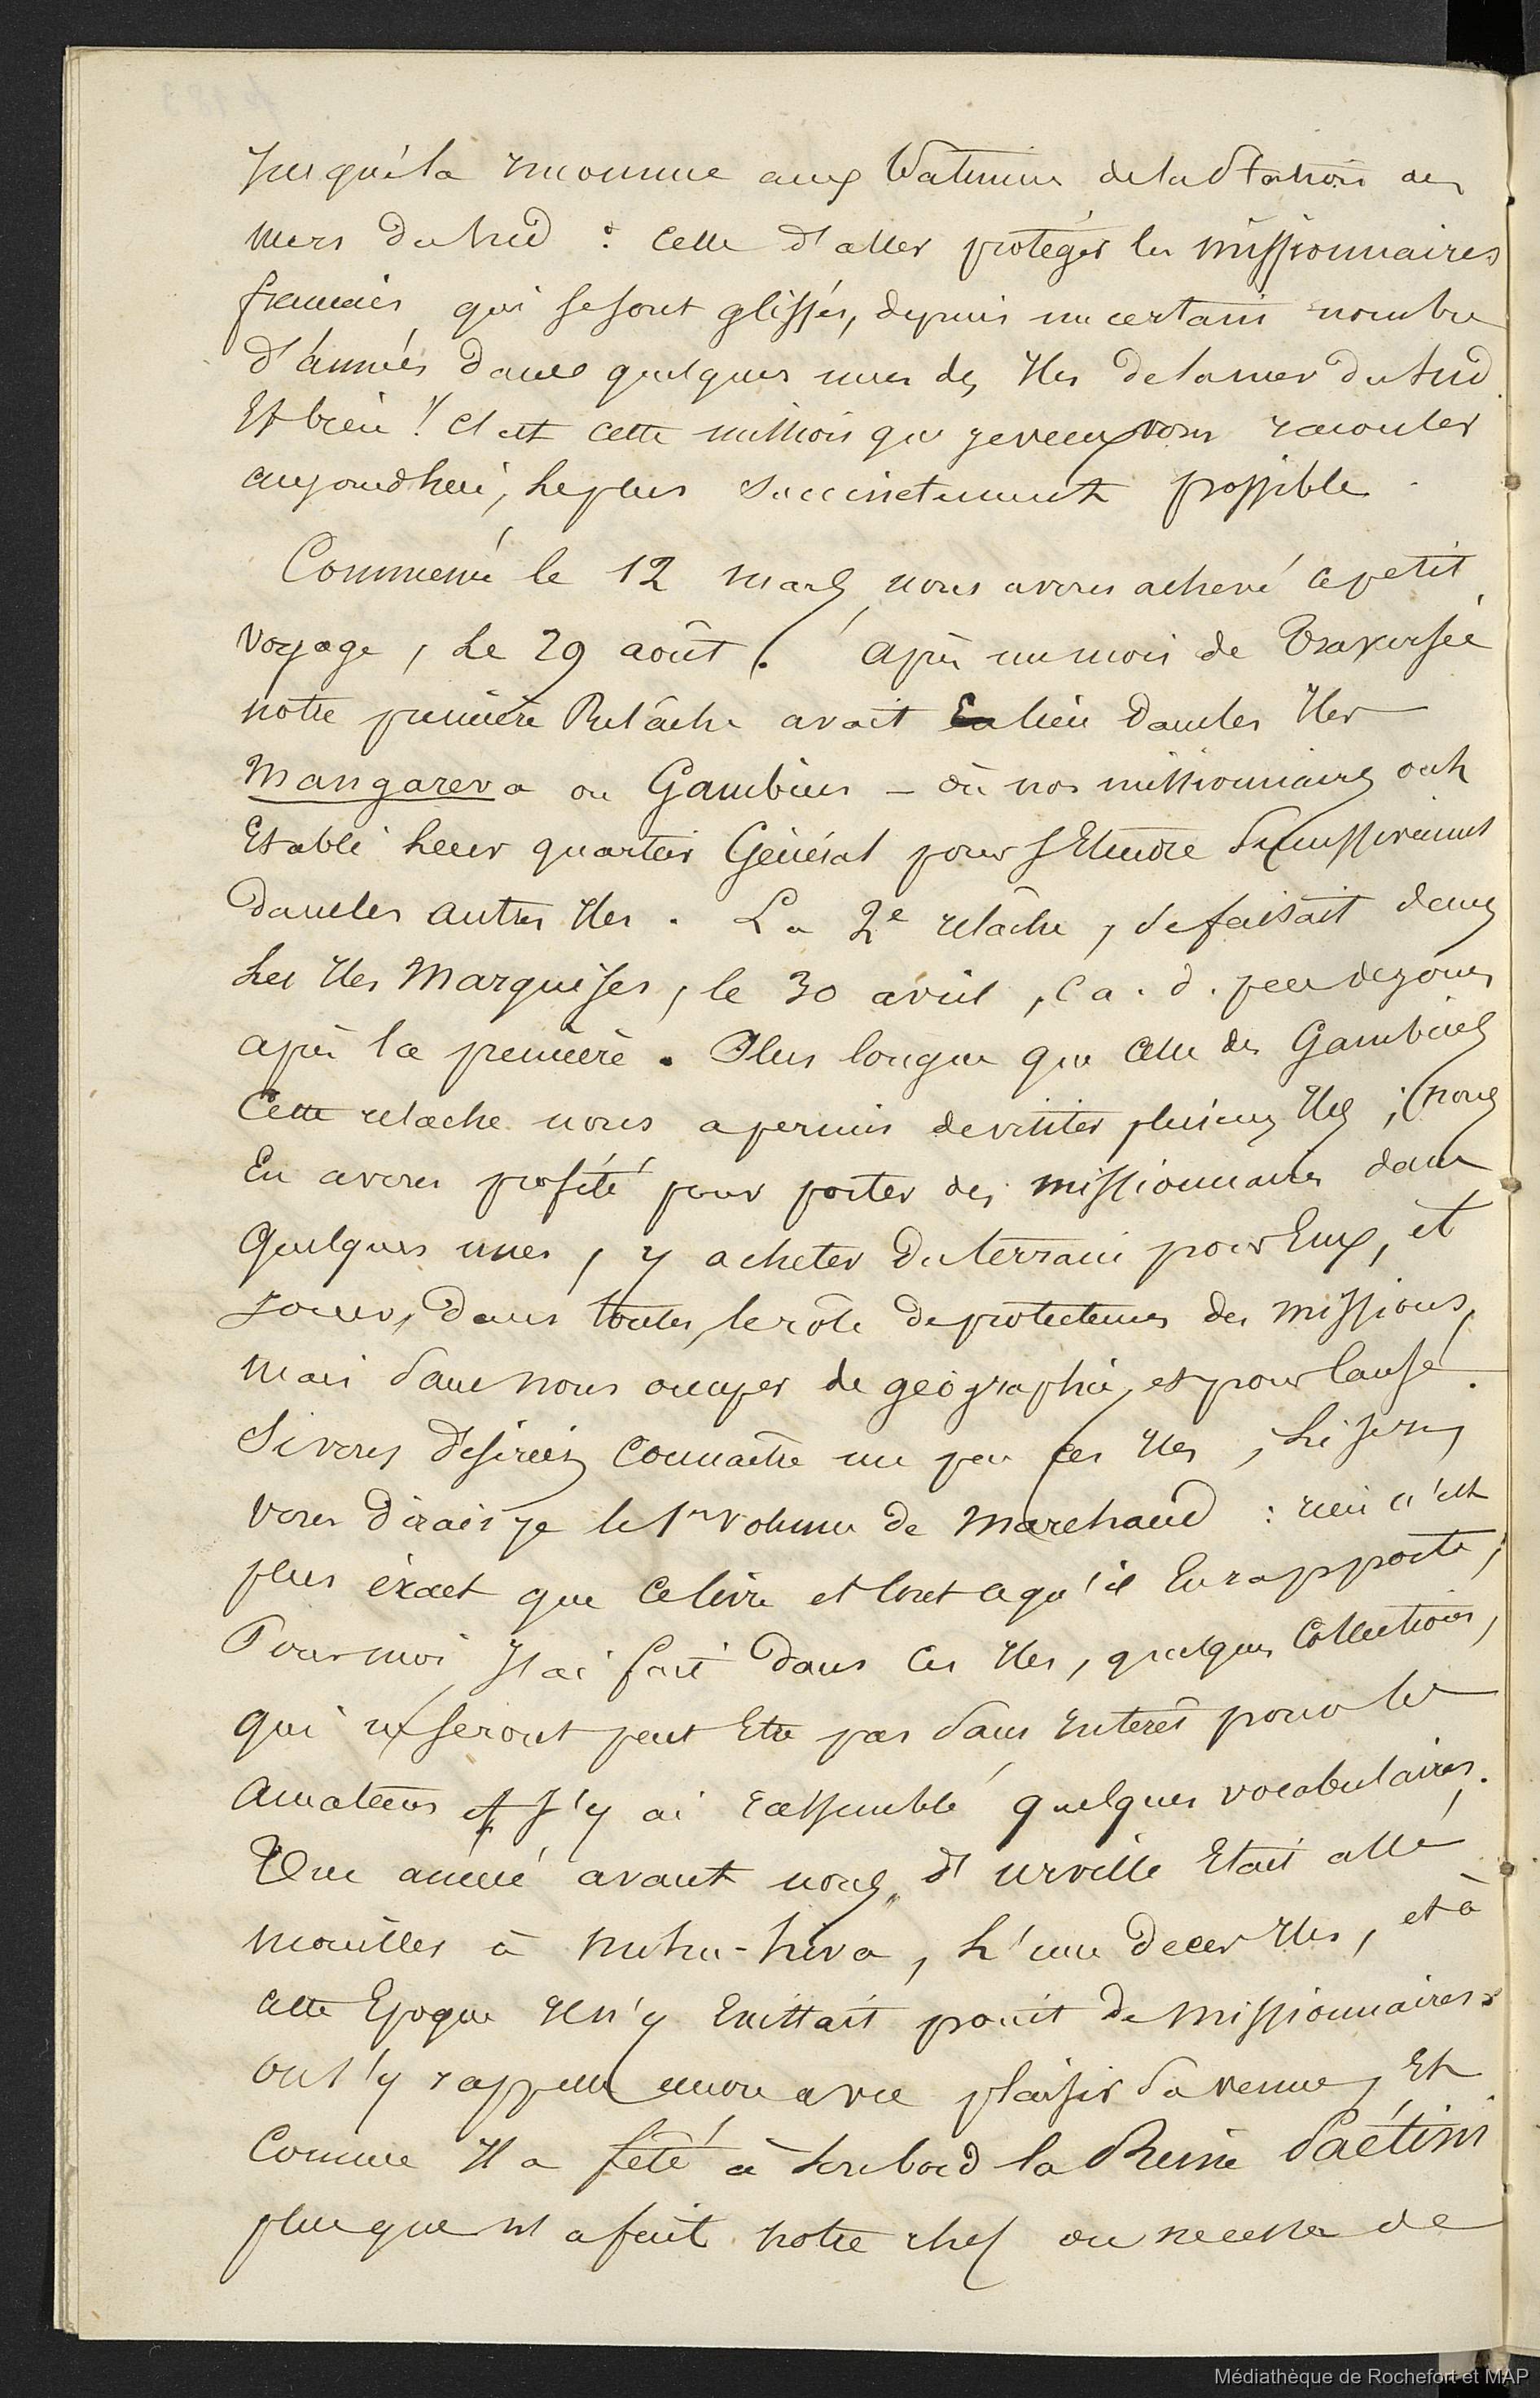 Jusqu'ila inconnue aux batimens de la Station des
mers du Sud : celle d'aller protéger les missionnaires
francais qui se sont glissés, depuis un certain nombre
d'années dans quelques unes des Iles de la mer du Sud.
Et bien ! C'est cette mission que je veux vous raconter
aujourd'hui, le plus succinctement possible.
Commencé le 12 mars, nous avons achevé ce petit
voyage, le 29 août. Après un mois de traversée
notre première Relâche avait eu lieu dans les Iles
Mangareva ou Gambier - où nos missionnaires ont
Etabli leur quartier Général pour s'Etendre successivement
dans les autres Iles. La 2e relâche, se faisait dans
Les Iles Marquises, le 30 avril, c a. d. peu de jours
après la première. Plus longue que celle des Gambier
Cette relache nous a permis de visiter plusieurs Iles ; nous
En avons profité pour porter des missionnaires dans
quelques unes, y acheter du terrain pour Eux, et
Jouer, dans toutes, le rôle de protecteurs des missions,
mais sans nous occuper de géographie, et pour cause.
Si vous desiriez Connaître un peu ces Iles, lisez
vous dirais je le 1er volume de Marchand : rien n'est
plus éxact que ce livre et tout ce qu'il En rapporte ;
Pour moi, J'ai fait dans ces Iles, quelques Collections,
qui ne seront peut Etre pas sans Interêt pour les
amateurs et J'y ai rassemblé quelques vocabulaires.
Une année avant nous, d'urville Etait allé
mouiller à Nuhu-hiva, L'une de ces Iles, et à
cette Epoque Il n'y Existait point de missionnaires.
On s'y rappelle encore avec plaisir sa venue, Et
Comme Il a fêté à son bord la Reine Paétini
plus que ne l'a fait notre chef on ne cesse de
Médiathèque de Rochefort et MAP